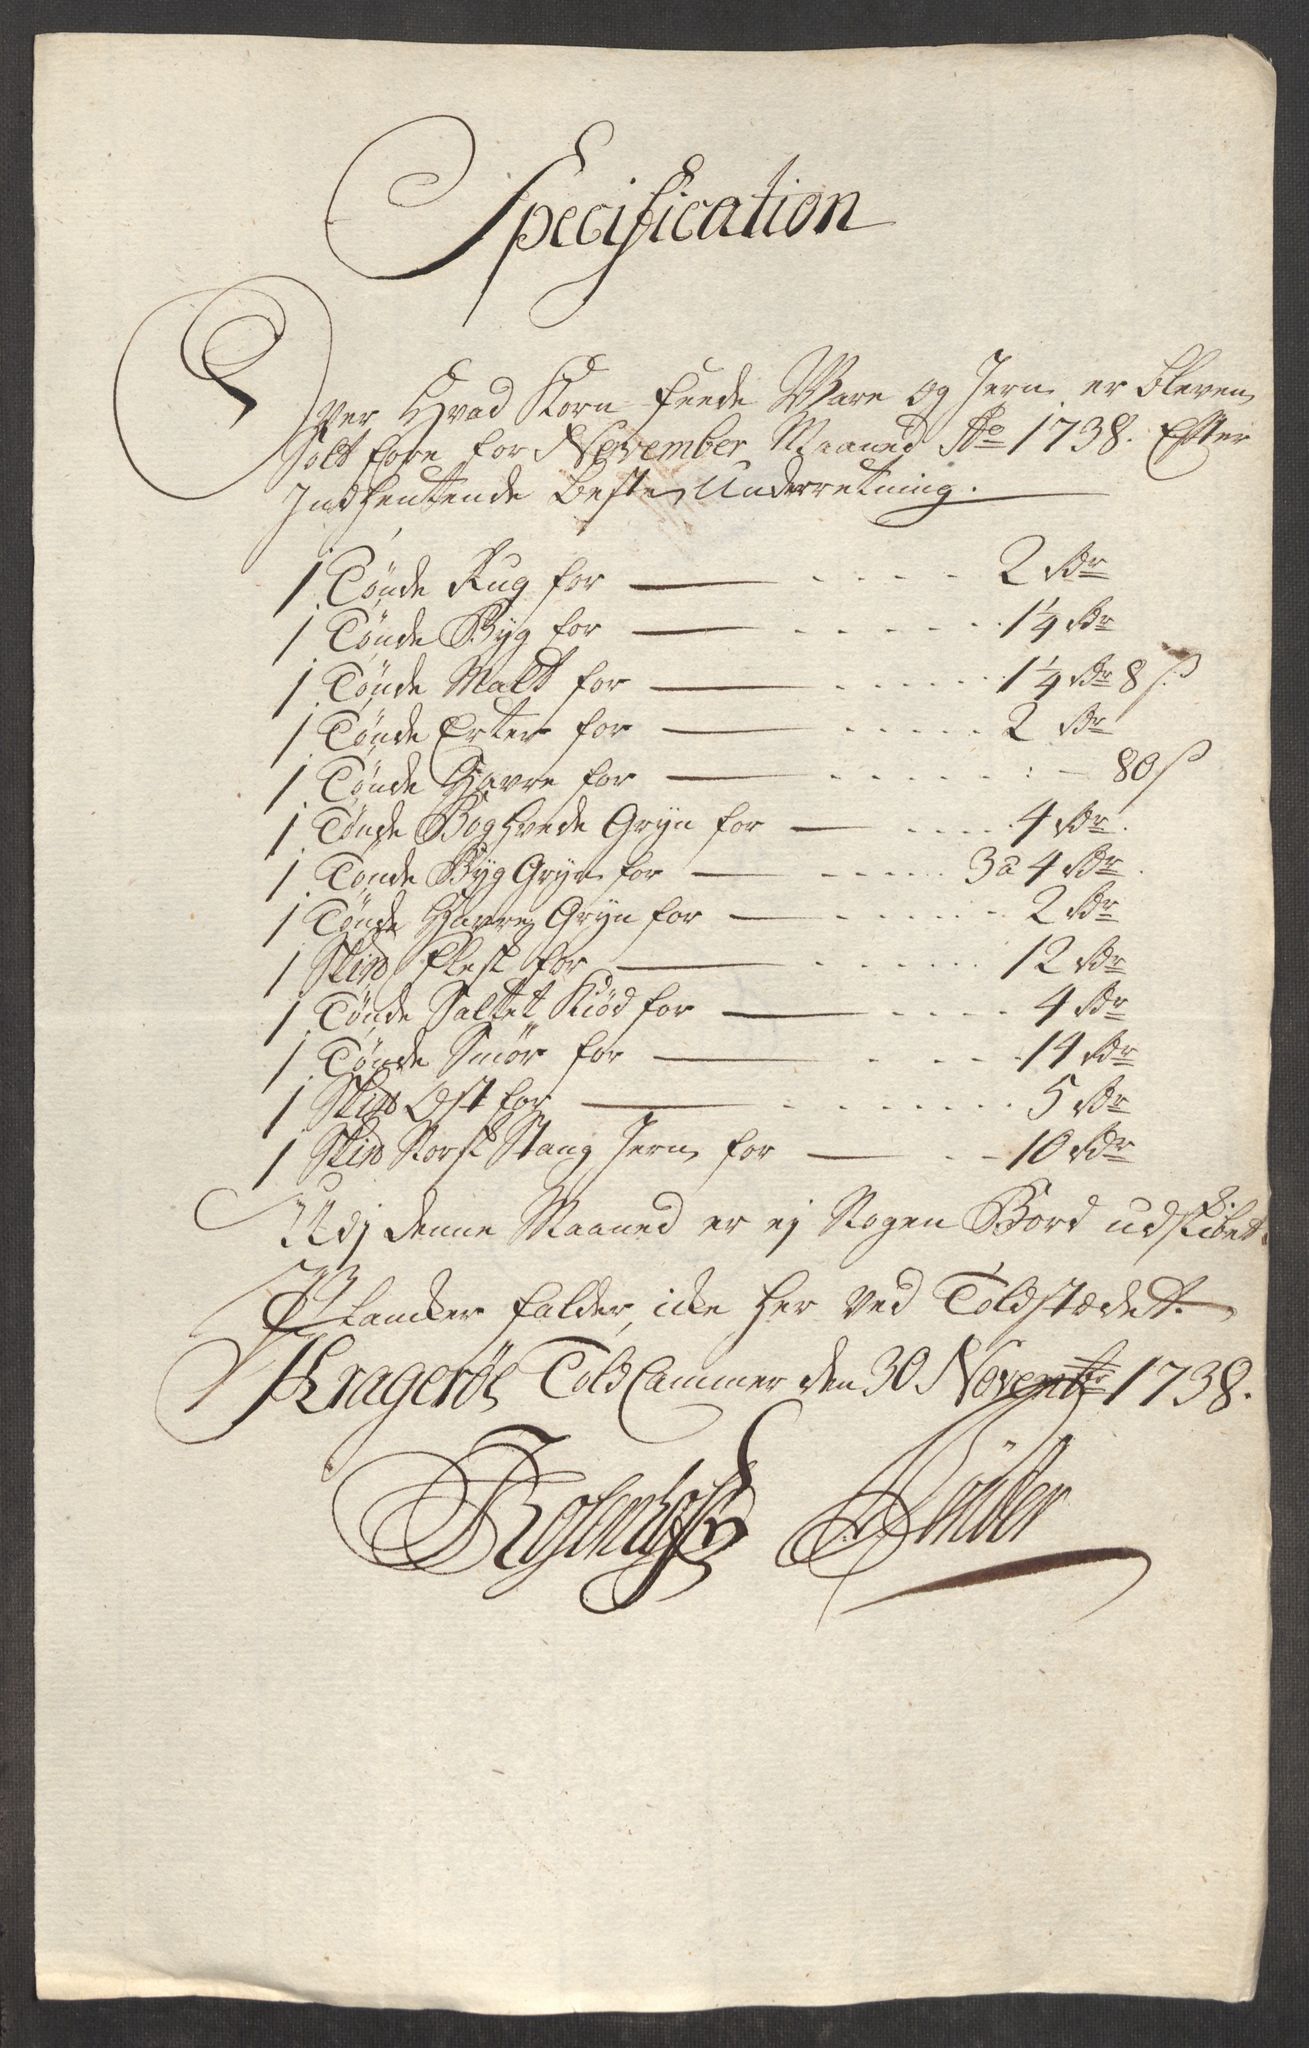 Specification
Over Hvad Korn feede Ware og Jern er bleven
Solt fore for November Maaned Ao 1738. Efter
Indhentende beste Underretning.
1 Tønde Rug for 2 Rdr
1 Tønde Byg for 1 1/4 Rdr
1 Tønde Malt for 1 1/4 Rdr 8 s.
1 Tønde Erter for 2 Rdr
1 Tønde Havre for 80 s
1 Tønde Boghvede Gryn for 4 Rdr.
1 Tønde Byg Gryn for 3 a 4 Rdr.
1 Tønde Havre Gryn for 2 Rdr
1 Skip Flesk for 12 Rdr
1 Tønde Saltet Kiød for 4 Rdr
1 Tønde Smør for 14 Rdr
1 Skip Ost for 5 Rdr
1 Skip Norsk Stang Jern for 10 Rdr
Udj denne Maaned er ej Nogen Bord udskibet.
Plancker falder icke her ved Toldstædet.
Kragerøe Told Cammer den 30 Novembr 1738.